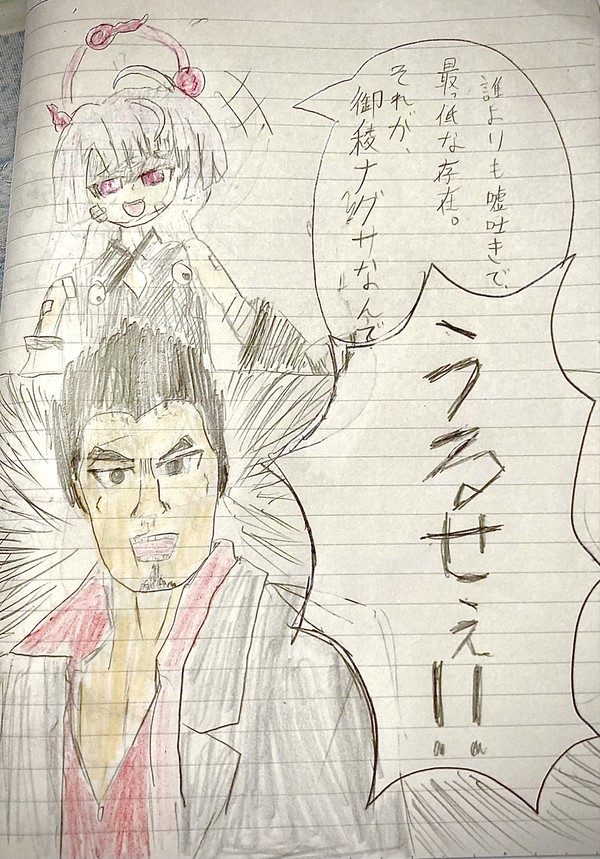 誰よりも嘘吐きで、
最っ低な存在。
それが、
御稜ナグサなんで
うるせぇ!!